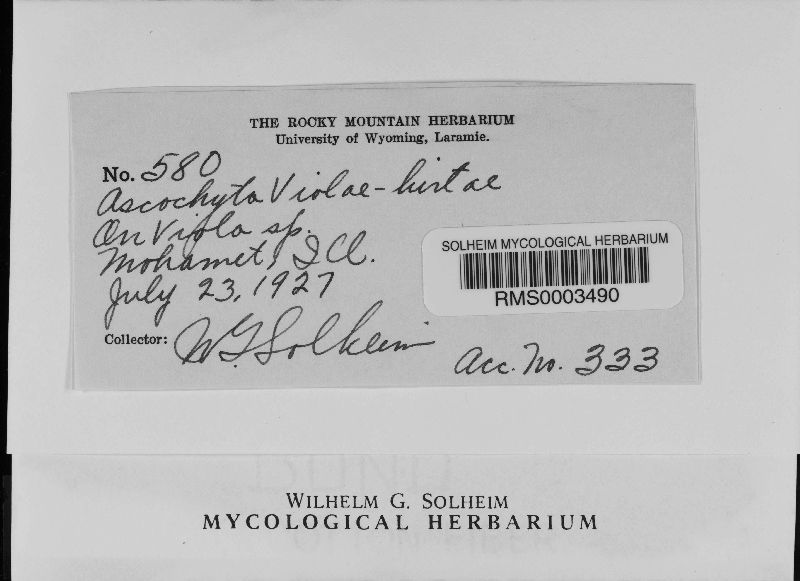 THE ROCKY MOUNTAIN HERBARIUM
University of Wyoming, Laramie.
No. 580
Ascochyta Violae-hirtae
On Viola sp.
Mohamet, Ill.
July 23, 1927
SOLHEIM MYCOLOGICAL HERBARIUM
RMS0003490
Collector: W G Solheim
Acc. No. 333
WILHELM G. SOLHEIM
MYCOLOGICAL HERBARIUM